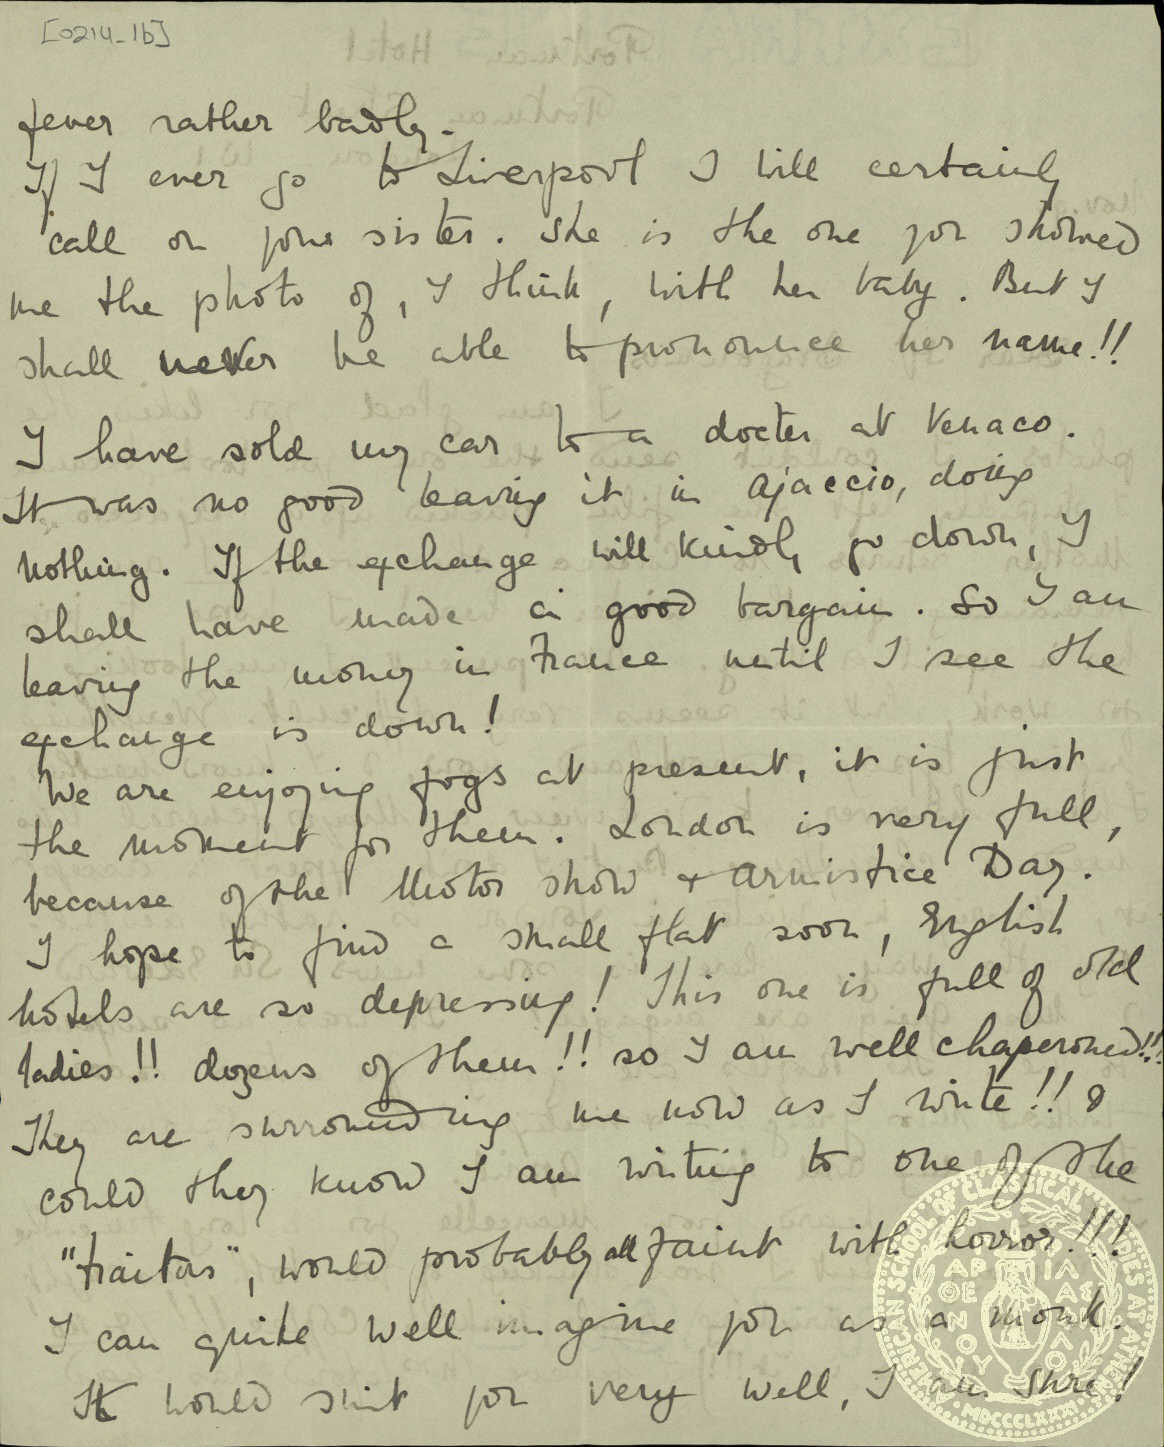 [0214_1b]
fever rather badly.
If I ever go to Liverpool I will certainly
call on your sister. She is the one you showed
me the photo of, I think, with her baby. But I
shall never be able to pronounce her name!!
I have sold my car to a docter at Venaco.
It was no good leaving it in Ajaccio, doing
nothing. If the exchange will kindly go down, I
shall have made a good bargain. So I am
leaving the money in France until I see the
exchange is down!
We are enjoying fogs at present, it is just
the moment for them. London is very full,
because of the Motor show + Armistice Day.
I hope to find a small flat soon, English
hotels are so depressing! This one is full of old
ladies!! dozens of them!! so I am well chaperoned!!!
They are surrounding me now as I write!! &
could they know I am writing to one of the
"traitors", would probably all faint with horror!!!
I can quite well imagine you as a monk.
It would suit you very well, I am sure!
AMERICAN SCHOOL OF CLASSICAL STUDIES AT ATHENS
MDCCCLXXXI
ΠΑΡΘΕΝΟΥ